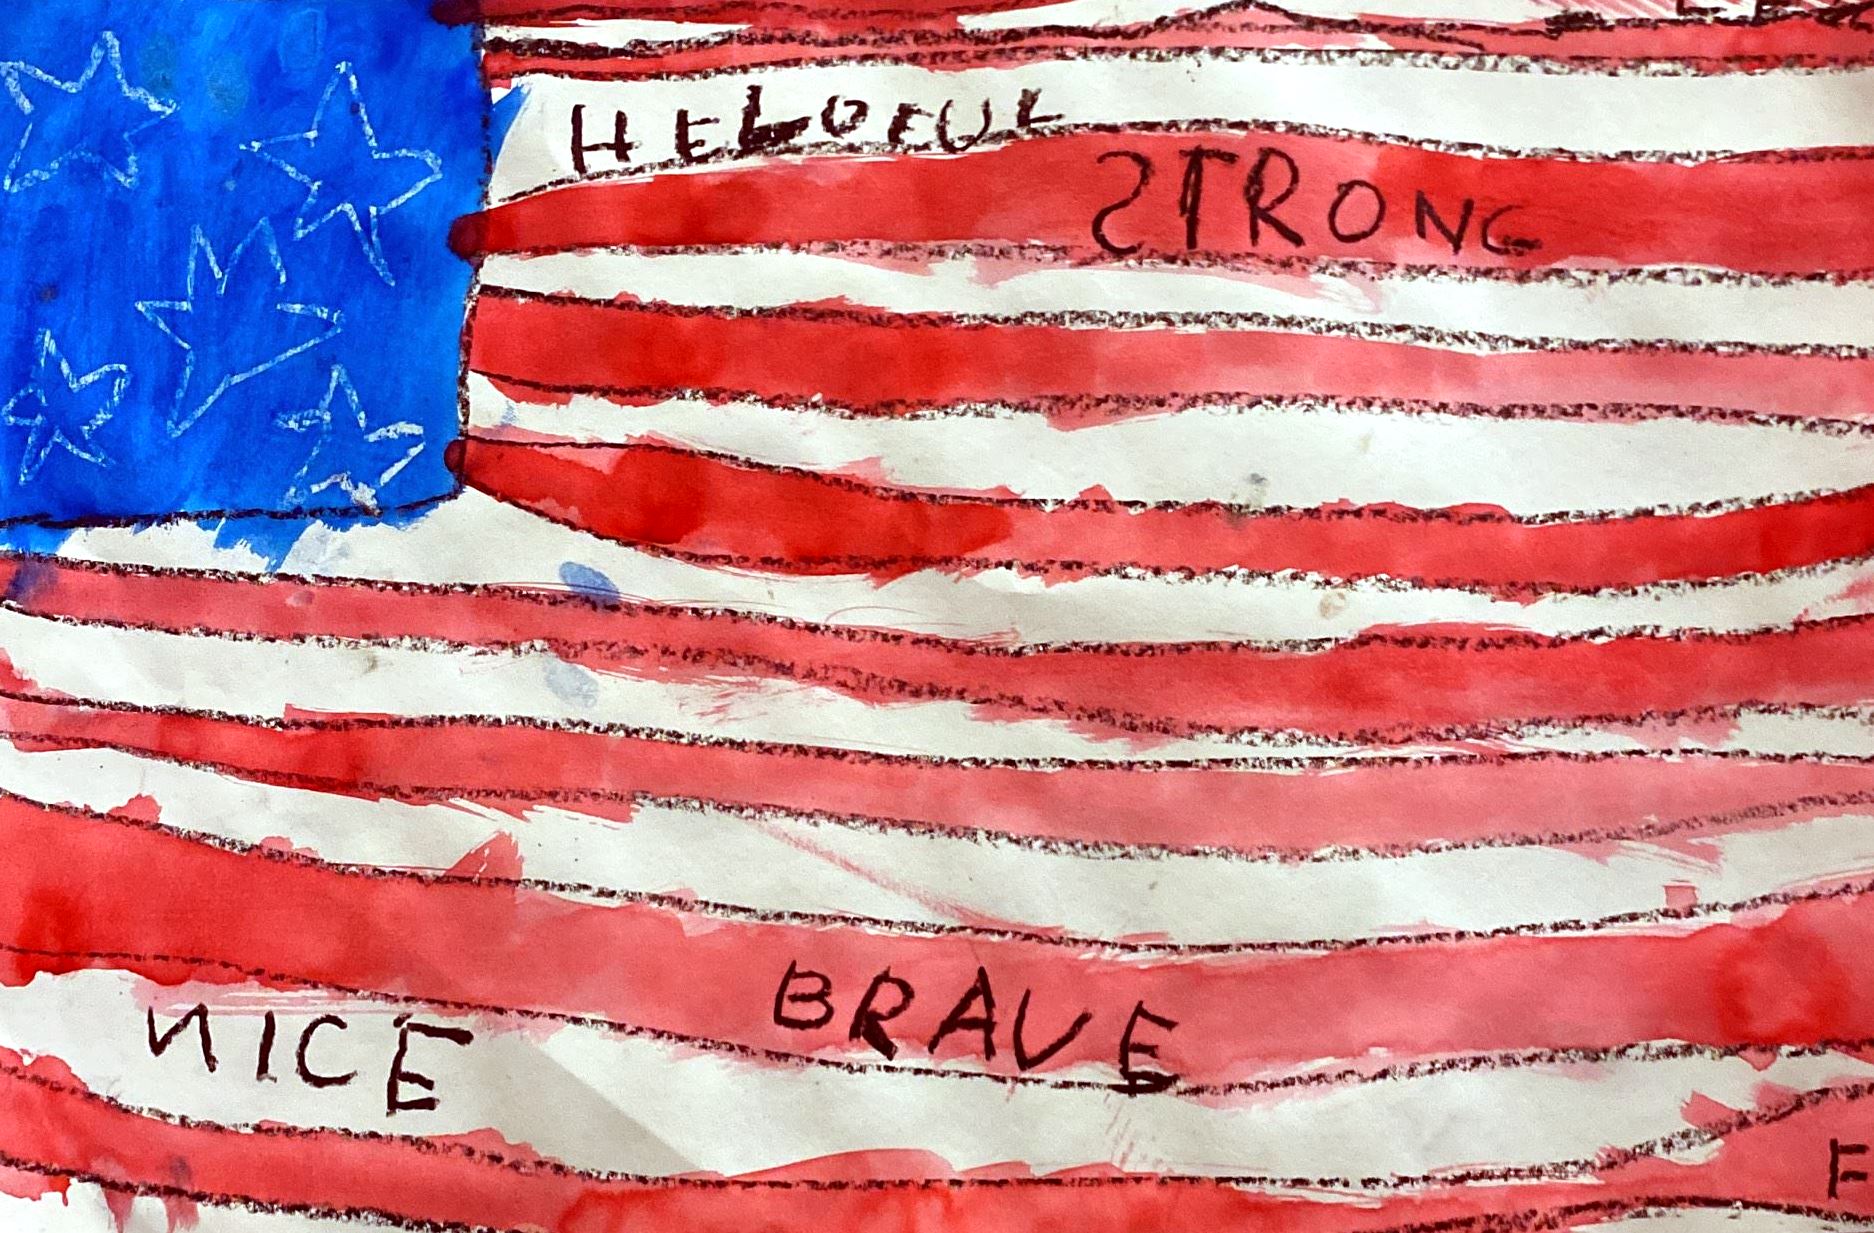 HELPFUL
STRONG
BRAVE
NICE
F